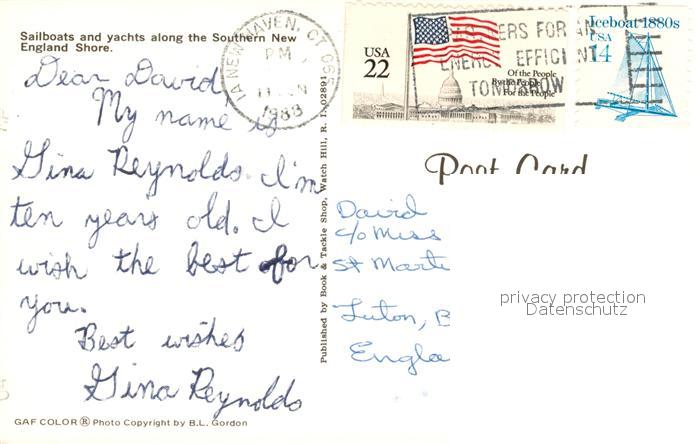 Sailboats and yachts along the Southern New
England Shore.
Dear David
My name is
Gina Reynolds. I'm
ten years old. I
wish the best for
you.
Best wishes
Gina Reynolds
GAF COLOR ® Photo Copyright by B.L. Gordon
Published by Book & Tackle Shop, Watch Hill, R. I. 02891
NEW HAVEN, CT
PM
1988
USA
22
Of the People
By the People
For the People
ENERGY EFFICIENT
TOMORROW
Iceboat 1880s
USA
14
Post Card
David
c/o Miss
St Marti
Luton, B
Engla
privacy protection
Datenschutz